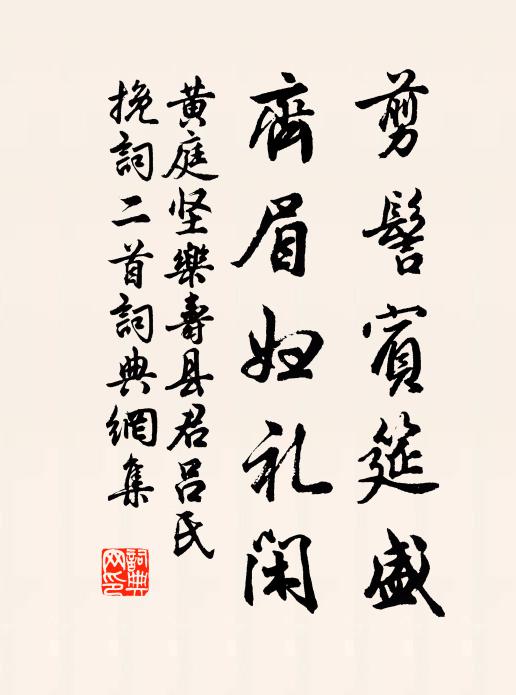 剪髻賓筵盛
齊眉妇礼閑
黄庭坚樂壽县君吕氏
挽詞二首詞典網集
詞典网印